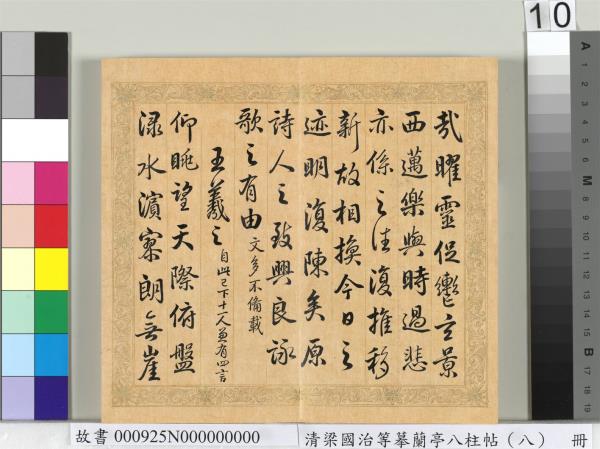 哉曜靈促轡玄景
西邁樂與時過悲
亦係之往復推移
新故相換今日之
迹明復陳矣原
詩人之致興良詠
歌之有由文多不備載
王羲之自此已下十一人並有四言
仰眺望天際俯盤
渌水濵寥朗無崖
10
故書 000925N000000000
清梁國治等摹蘭亭八柱帖（八） 冊
A
1
2
3
4
5
6
M
8
9
10
11
12
13
14
15
B
17
18
19